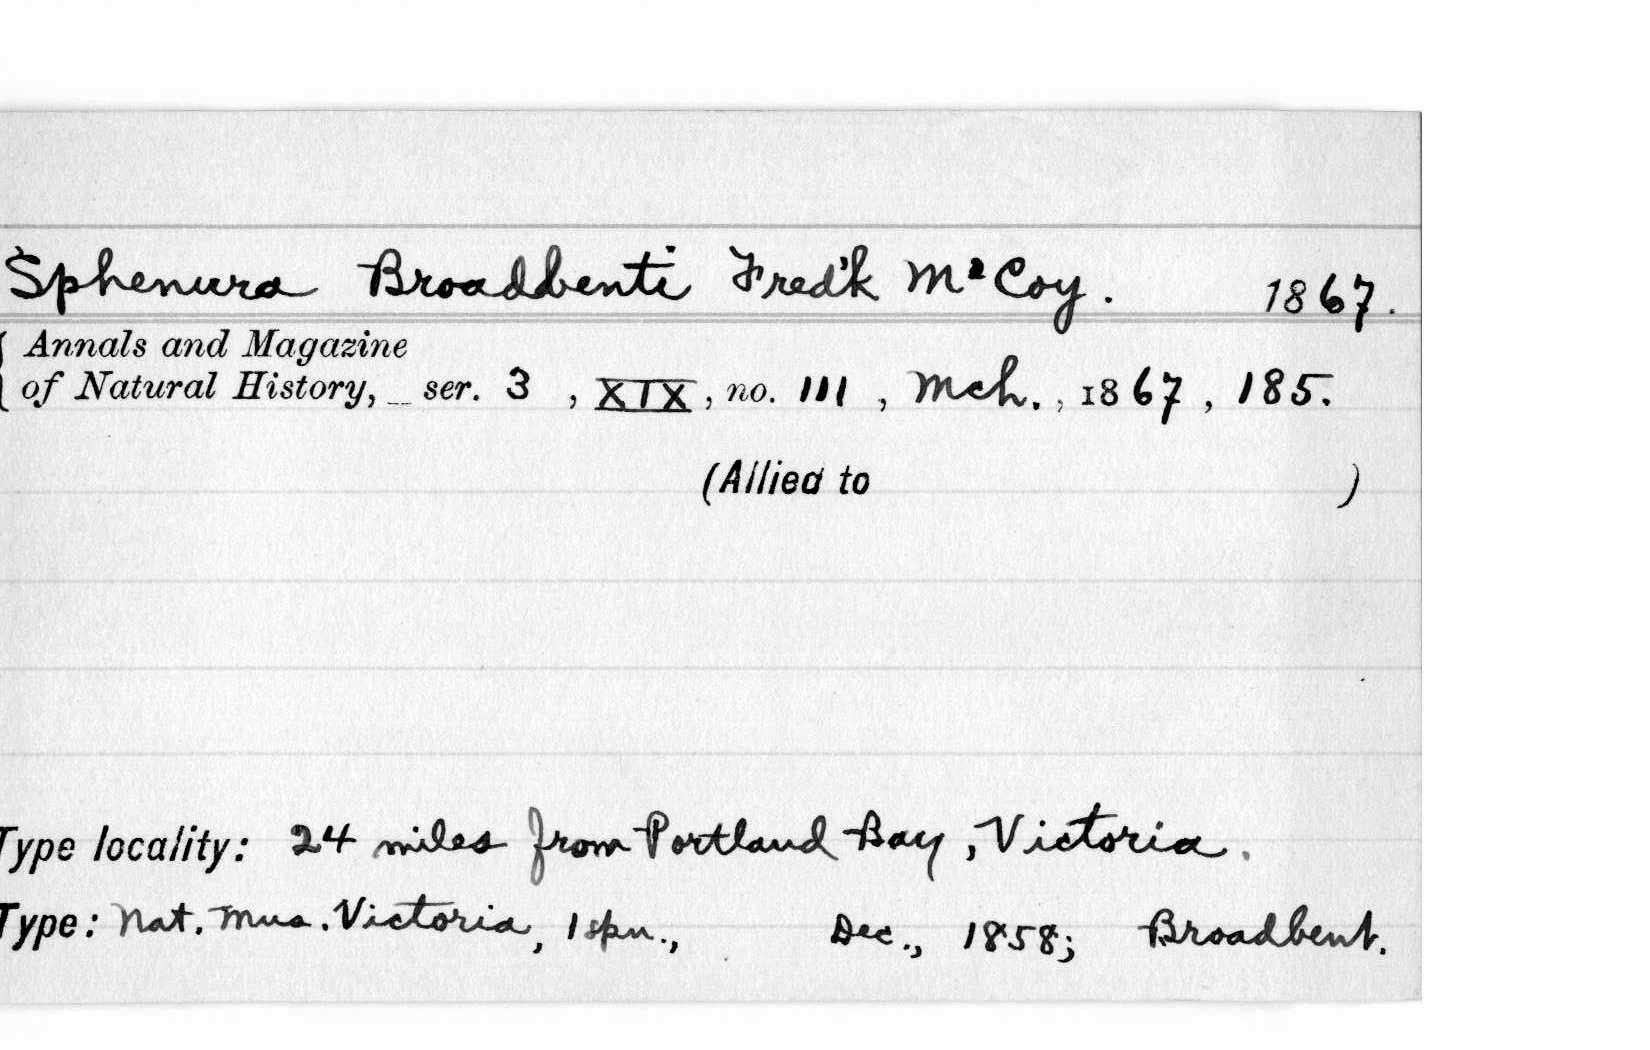 Sphenura Broadbenti Fred'k McCoy. 1867.
{ Annals and Magazine
of Natural History, _ ser. 3 , XIX, no. 111 , Mch. , 1867 , 185.
(Allied to )
Type locality: 24 miles from Portland Bay, Victoria.
Type: Nat. Mus. Victoria, 1 spn., Dec., 1858; Broadbent.